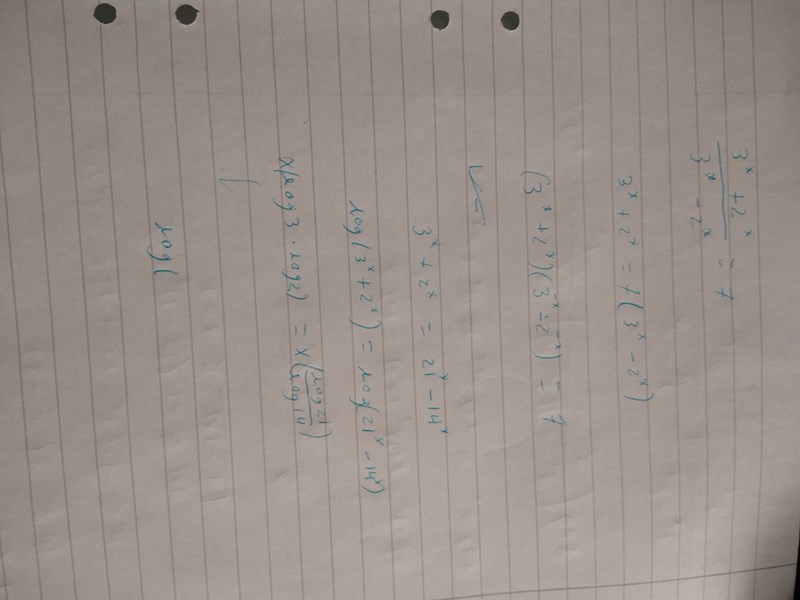 3ˣ + 2ˣ
3ˣ - 2ˣ = 7
3ˣ + 2ˣ = 7(3ˣ - 2ˣ)
(3ˣ + 2ˣ)(3⁻ˣ - 2⁻ˣ) = 7
3ˣ + 2ˣ = 21ˣ - 14ˣ
log(3ˣ + 2ˣ) = log(21ˣ - 14ˣ)
x(log3 · log2) = x(log21 / log14)
log(